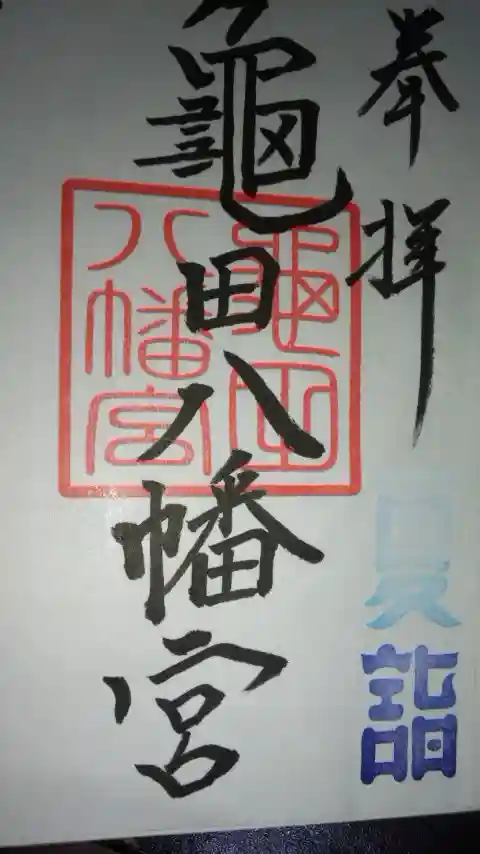 奉拝
夏詣
龜田八幡宮
龜田
八幡宮